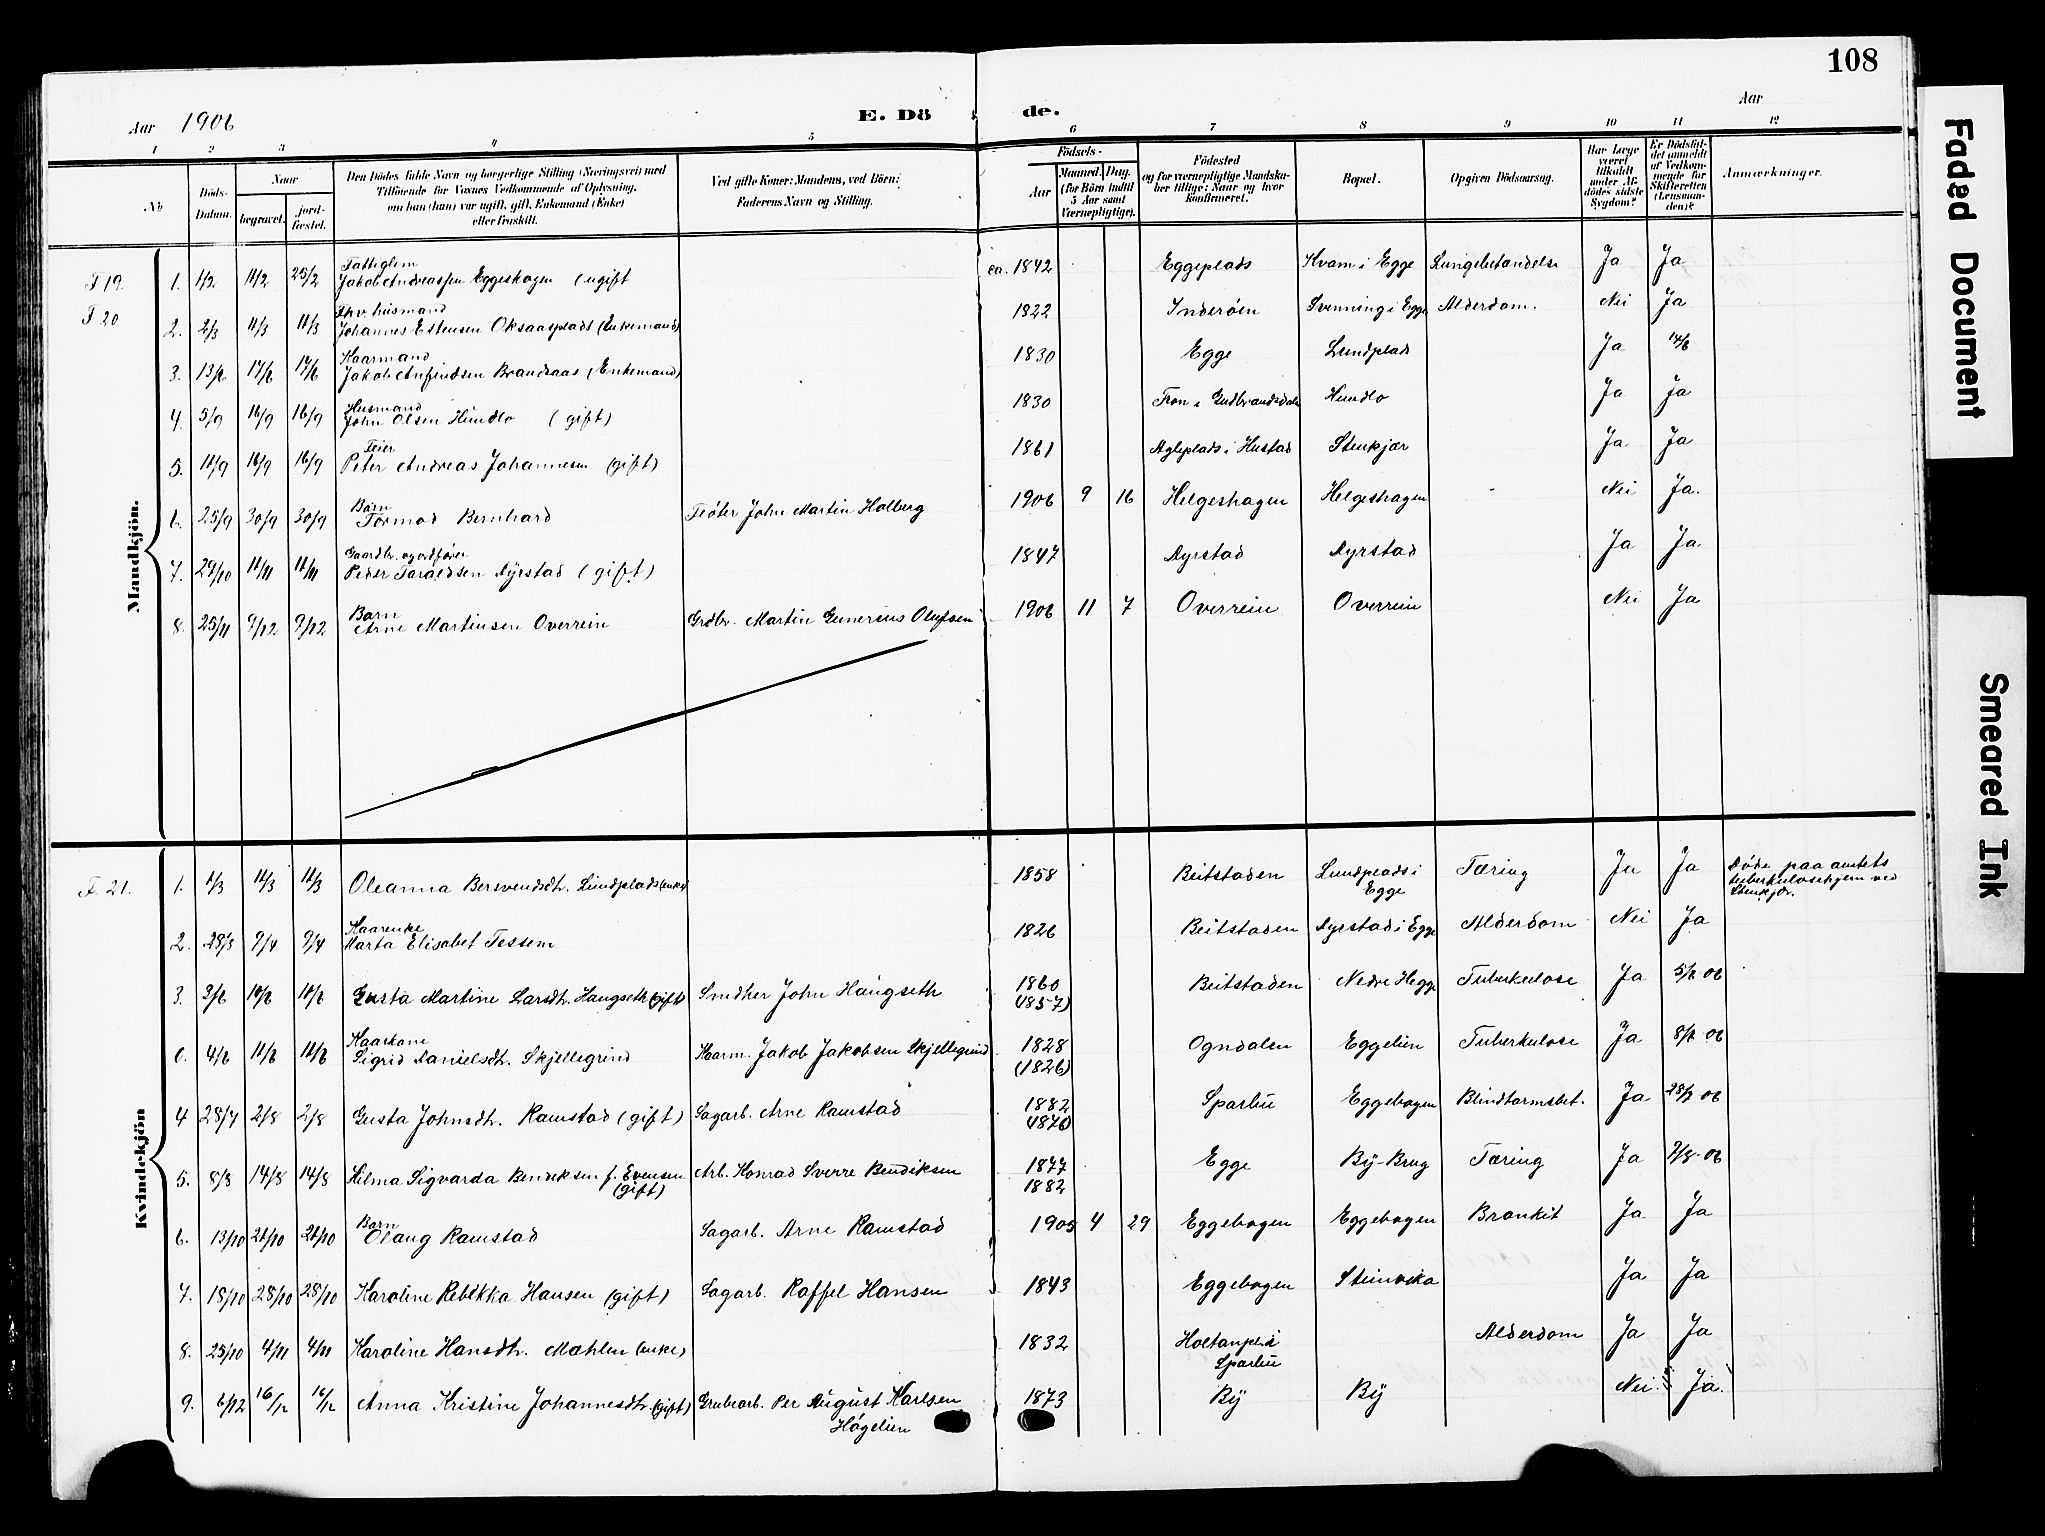 108
Aar 1906
E. Dö de.
Aar
1 2 3 4 5 6 7 8 9 10 11 12
No
Döds-Datum.
Naar
begravet.
jord-fæstet.
Den Dödes fulde Navn og borgerlige Stilling (Næringsvei) med
Tilföiende for Voxnes Vedkommende af Oplysning,
om han (hun) var ugift, gift, Enkemand (Enke)
eller fraskilt.
Ved gifte Koner: Mandens, ved Börn:
Faderens Navn og Stilling.
Födsels-
Aar
Maaned. Dag.
(for Börn indtil
5 Aar samt
Værnepligtige).
Födested
og for værnepligtige Mandska-
ber tillige: Naar og hvor
konfirmeret.
Bopæl.
Opgiven Dödsaarsag.
Har Læge
været
tilkaldt
under Af-
dödes sidste
Sygdom?
Er Dödsfal-
det anmeldt
af Vedkom-
mende for
Skifteretten
(Lensman-
den)?
Anmærkninger.
Mandkjön.
F 19. 1. 1/2 11/2 25/2 Fattiglem
Jakob Andreassen Eggeshagen (ugift ca. 1842 Eggeplads Kvam i Egge Lungebetændelse Ja Ja
F 20 2. 2/3 11/3 11/3 Fhv. husmand
Johannes Estensen Oksaasplads (Enkemand) 1822 Inderöen Svenning i Egge Alderdom. Nei Ja
3. 13/6 17/6 17/6 Kaarmand
Jakob Anfindsen Brandsaas (Enkemand) 1830 Egge Lundplads Ja 14/6
4. 5/9 16/9 16/9 Husmand
John Olsen Hundlo (gift) 1830 Fron i Gudbrandsdalen Hundlo Ja Ja
5. 11/9 16/9 16/9 Feier
Peter Andreas Johannesen (gift) 1861 Agleplads i Hustad Stenkjær Ja Ja
6. 25/9 30/9 30/9 Barn
Tormod Bernhard John Martin Holberg 1906 9 16 Helgeshagen Helgeshagen Nei Ja.
7. 29/10 11/11 11/11 Gaardbr. og ordfører
Peder Taraldsen Dyrstad (gift) 1847 Dyrstad Dyrstad Ja Ja
8. 25/11 9/12 9/12 Barn
Arne Martinsen Overrein Grdbr. Martin Gunerius Olufsen 1906 11 7 Overrein Overrein Nei Ja
Kvindekjön
F 21. 1. 1/3 11/3 11/3 Oleanna Berevendsdtr. Lundplads (enke) 1858 Beitstaden Lundplads i
Egge Tæring Ja Ja Døde paa amtets
tuberkulosehjem ved
Stenkjær.
2. 28/3 9/4 9/4 Kaarenke
Marta Elisabet Tessem 1826 Beitstaden Dyrstad i Egge Alderdom Nei Ja
3. 3/6 10/6 10/6 Gusta Martine Larsdtr. Haugseth (gift) Snedker John Haugseth 1860
(1857) Beitstaden Nedre Hegge Tuberkulose Ja 5/6 06
4/6 11/6 11/6 Kaarkone
Sigrid Danielsdtr. Skjellegrind Kaarm. Jakob Jakobsen Skjellegrind 1828
(1826) Ogndalen Eggelien Tuberkulose Ja 8/6 06
4 28/7 2/8 2/8 Gusta Johnsdtr. Ramstad (gift) Sagarb. Arne Ramstad 1882
1876) Sparbu Eggebogen Blindtarmsbet. Ja 28/7 06
5. 8/8 14/8 14/8 Hilma Sigvarda Bendiksen f. Evensen
(gift) Arb. Konrad Sverre Bendiksen 1877
1882 Egge By-Brug Tæring Ja 9/8-06
6. 13/10 21/10 21/10 Barn
Olaug Ramstad Sagarb. Arne Ramstad 1905 4 29 Eggebogen Eggebogen Bronkit Ja Ja
7. 18/10 28/10 28/10 Karoline Rebekka Hansen (gift) Sagarb. Roffel Hansen 1843 Eggebogen Steinvika Ja Ja
8. 25/10 4/11 4/11 Karoline Hansdtr. Mæhlen (enke) 1832 Holtanpl. i
Sparbu Alderdom Ja Ja
9. 6/12 16/12 16/12 Anna Kristine Johannesdtr. (gift) Grubearb. Per August Karlsen
Høgelien 1873 By By Nei. Ja.
Faded Document
Smeared Ink